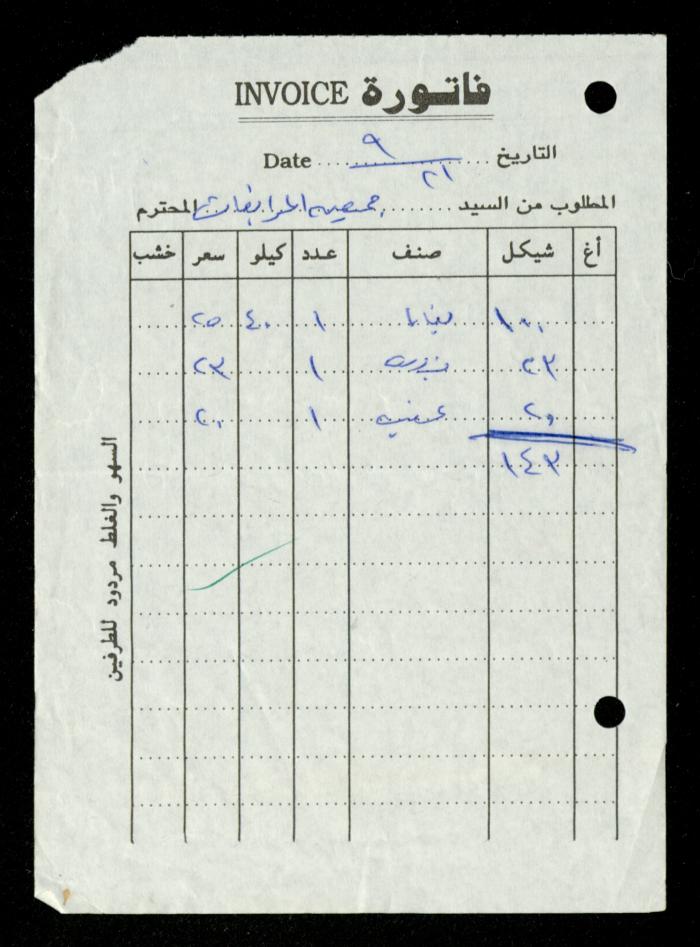 فاتورة INVOICE
التاريخ ٩/٢١ Date
المطلوب من السيد جمعية المرابطات المحترم
أغ شيكل صنف عدد كيلو سعر خشب
١٠٠ ١ ٤٠ ٢٥
٢٣ ١ ٢٣
٢٠ ١ ٢٠
١٤٣
السهو والغلط مردود للطرفين